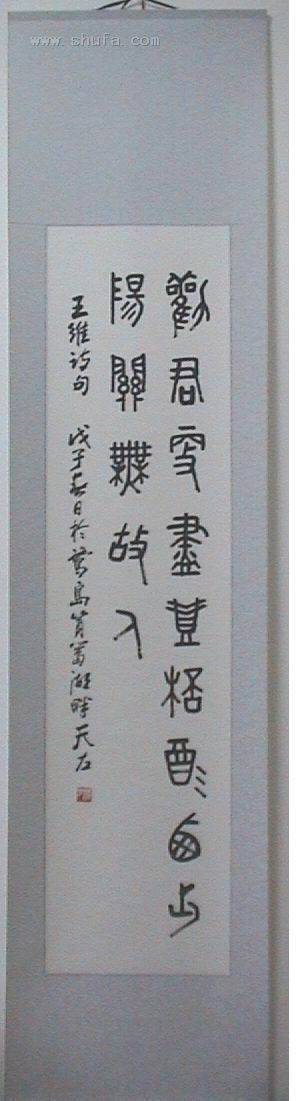 www.shufa.com
勸君更盡壹桮酒西出
陽關無故人
王維詩句 戊子春日於鷺島筼簹湖畔天左